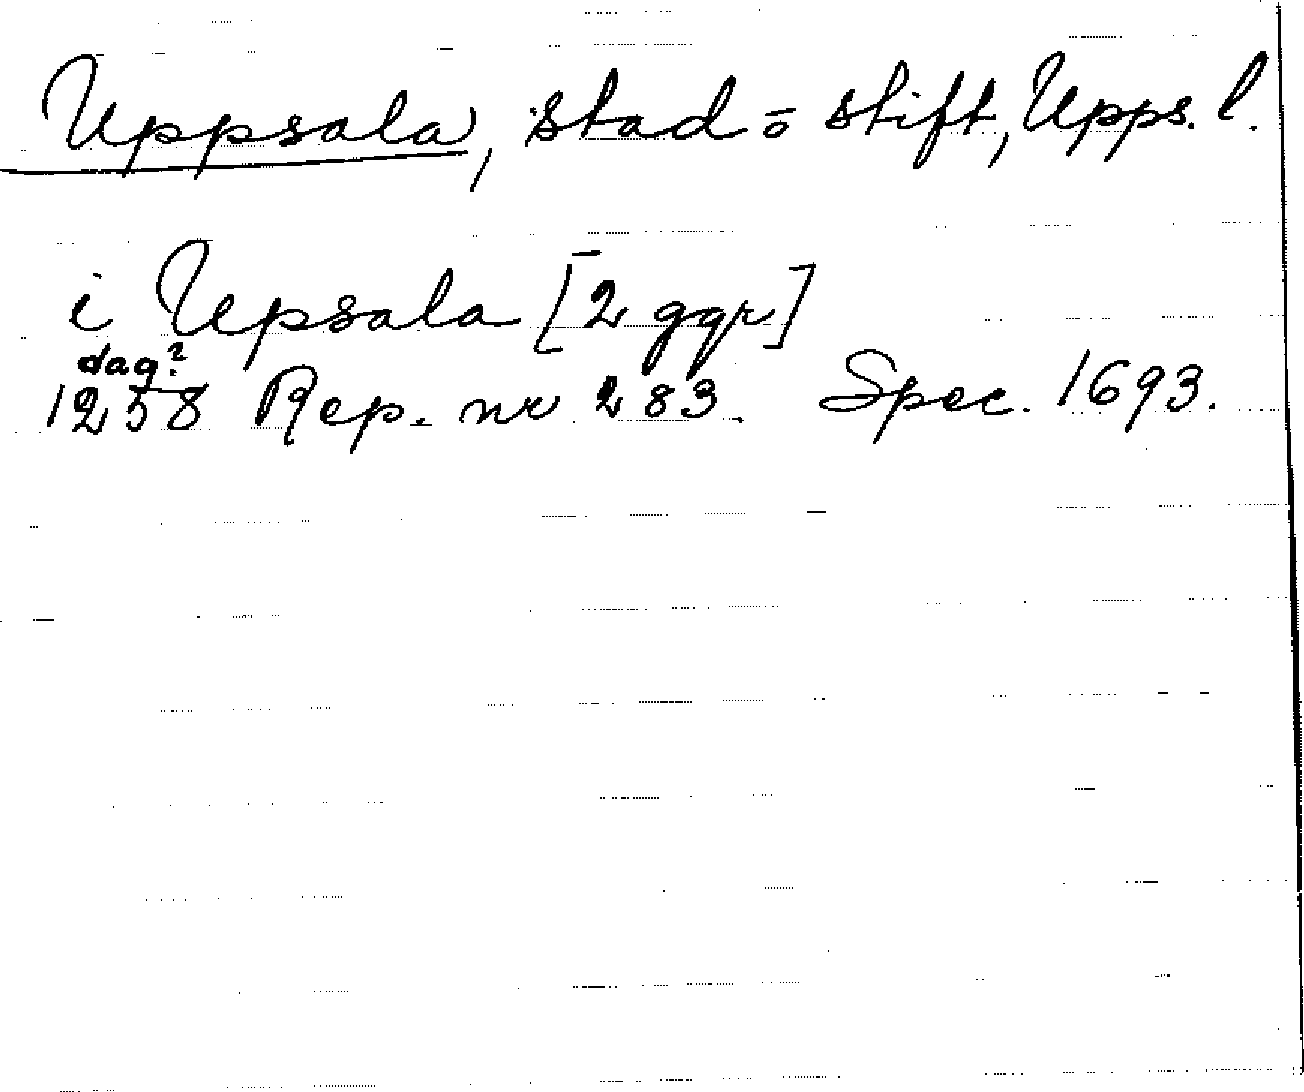 Uppsala, stad o stift, Upps. l.
i Upsala [2 ggr]
dag?
1258 Rep. nr 283. Spec. 1693.